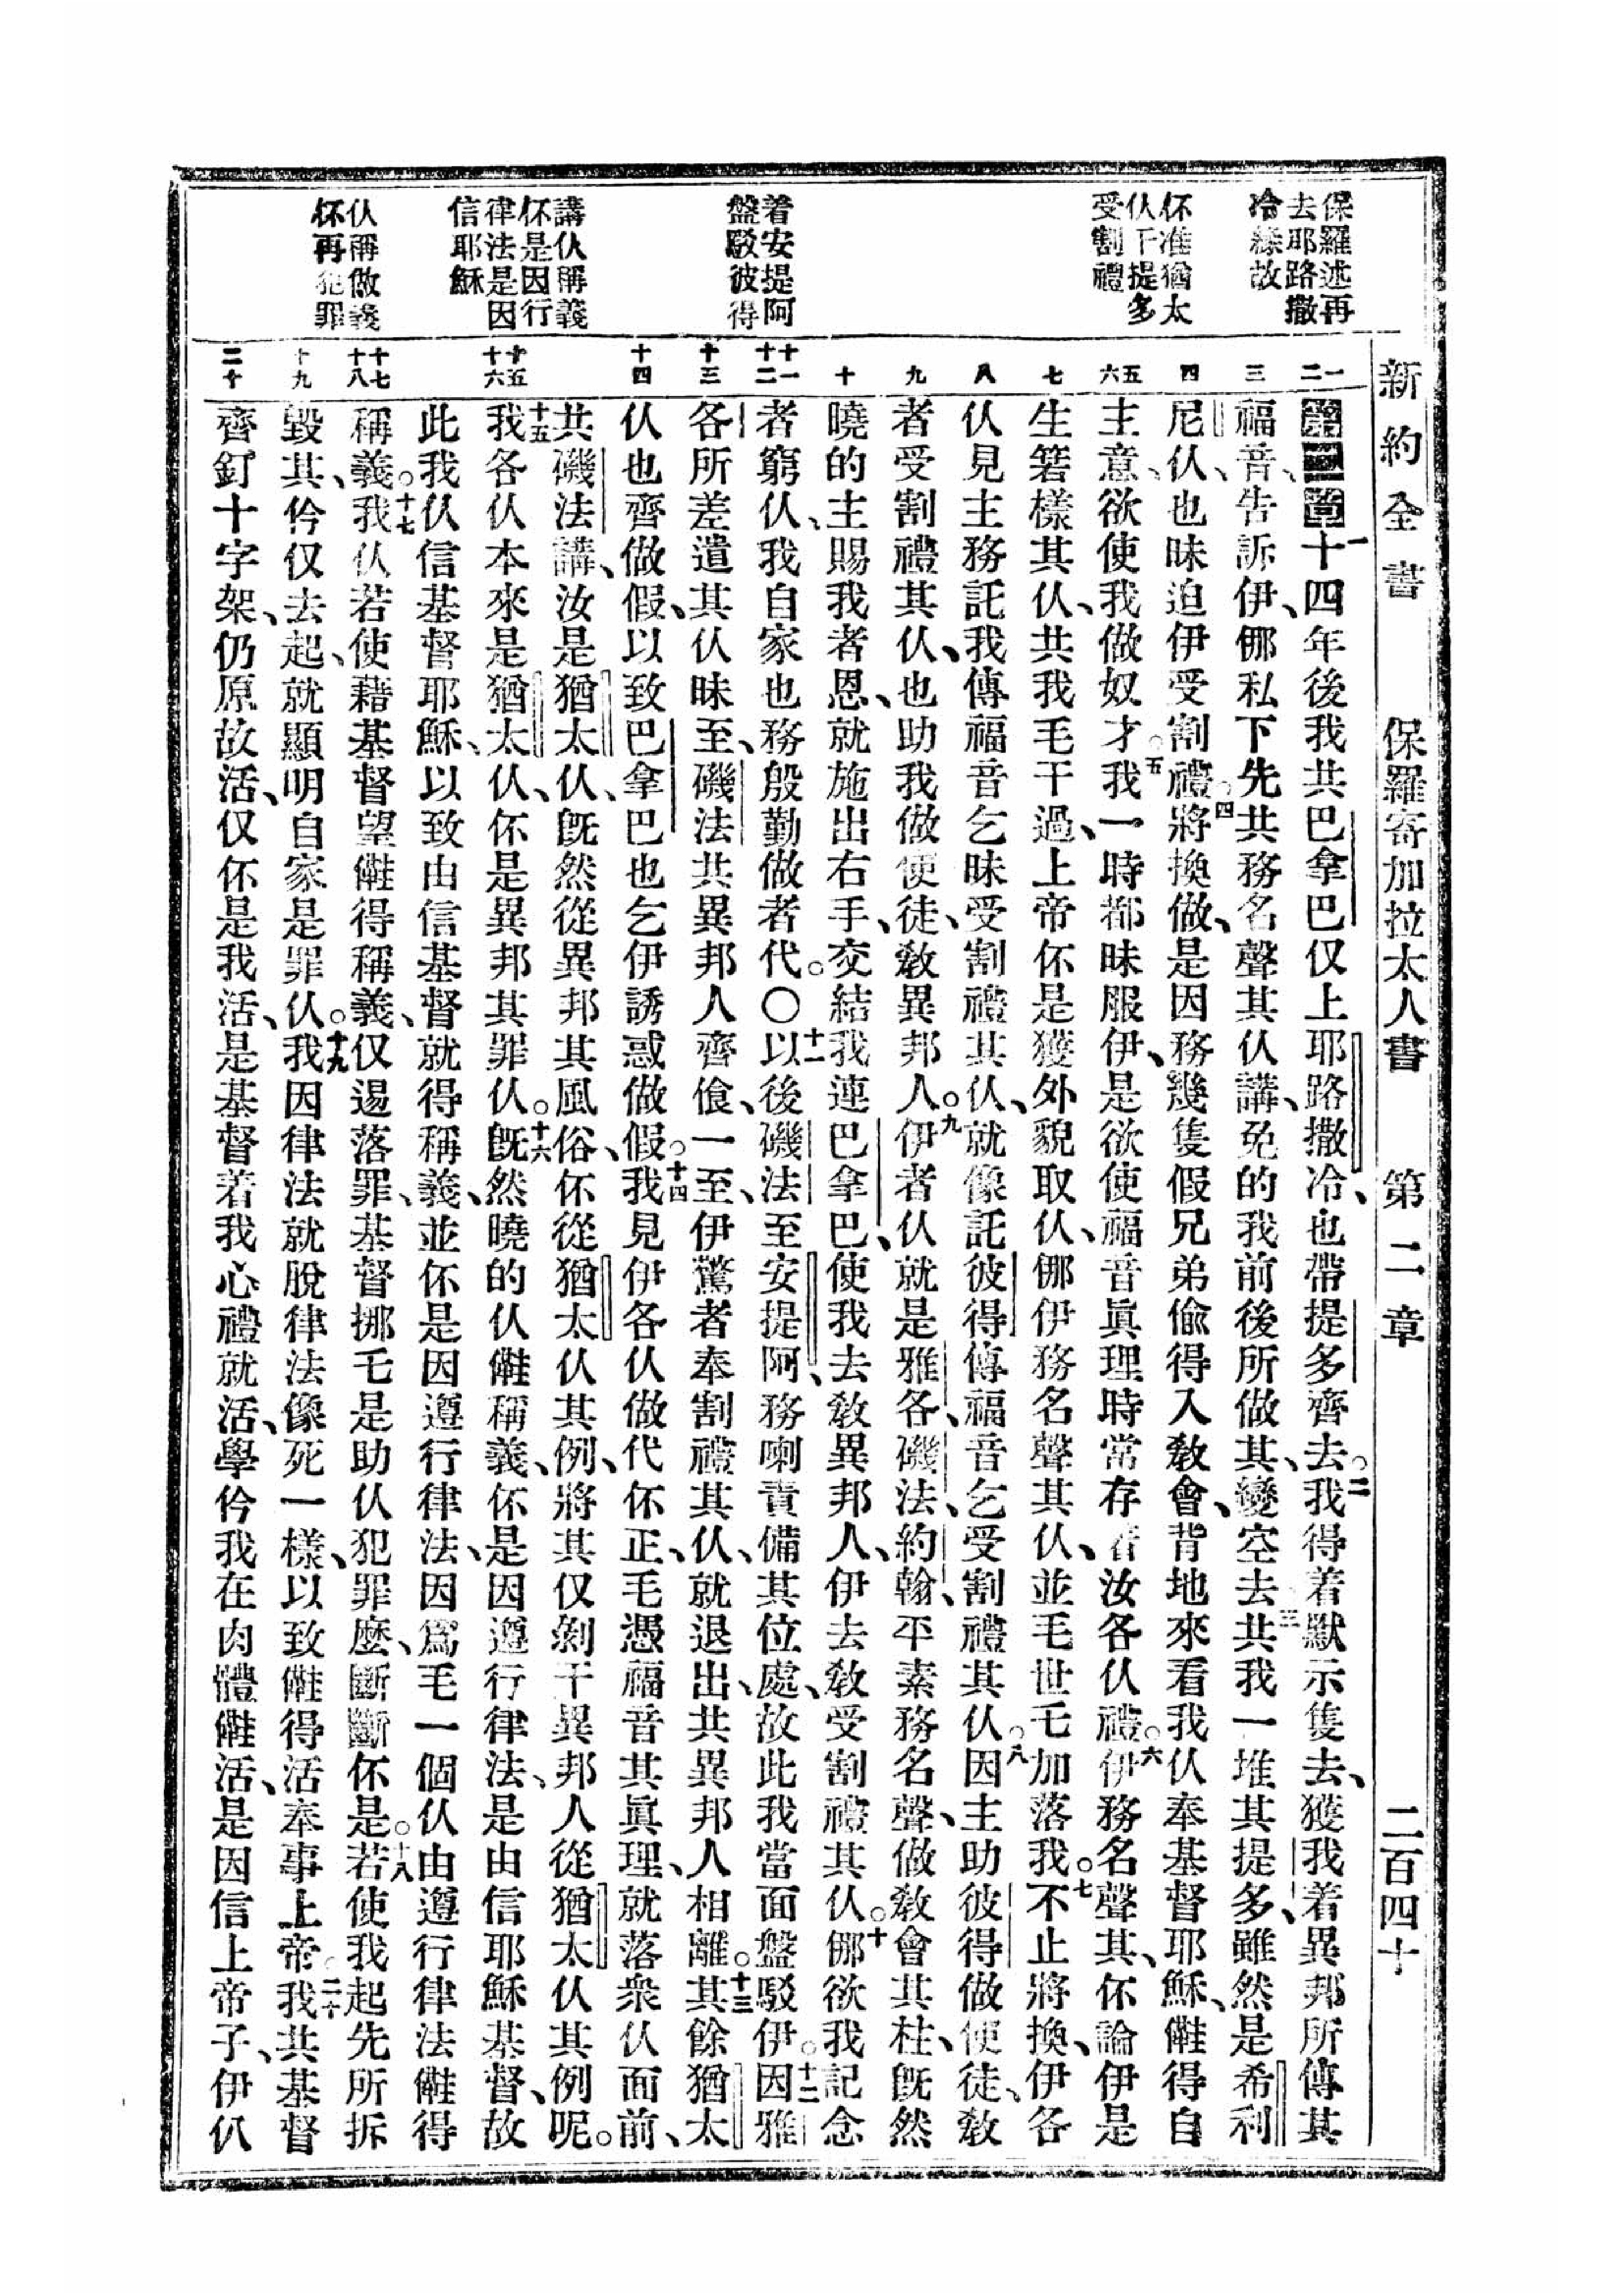 新約全書 保羅寄加拉太人書 第二章 二百四十
保羅述再
去耶路撒
冷緣故
伓准猶太
仈干提多
受割禮
着安提阿
盤駁彼得
講仈稱義
伓是因行
律法是因
信耶穌
仈稱做義
伓再犯罪
一
二
三
四
五
六
七
八
九
十
十一
十二
十三
十四
十五
十六
十七
十八
十九
二十
第二章一十四年後我共巴拿巴仅上耶路撒冷、也帶提多齊去。二我得着默示隻去、獲我着異邦所傳其
福音、告訴伊、㑚私下先共務名聲其仈講、免的我前後所做其、變空去。三共我一堆其提多、雖然是希利
尼仈、也昧迫伊受割禮。四將換做、是因務幾隻假兄弟偷得入敎會、背地來看我仈奉基督耶穌、㒕得自
主意、欲使我做奴才。五我一時都昧服伊、是欲使福音眞理時常存着汝各仈禮。六伊務名聲其、伓論伊是
生箬樣其仈、共我毛干過、上帝伓是獲外貌取仈、㑚伊務名聲其仈、並毛世乇加落我。七不止將換、伊各
仈見主務託我傳福音乞昧受割禮其仈、就像託彼得傳福音乞受割禮其仈。八因主助彼得做使徒、敎
者受割禮其仈、也助我做使徒、敎異邦人。九伊者仈就是雅各、磯法、約翰、平素務名聲、做敎會其柱、旣然
曉的主賜我者恩、就施出右手、交結我連巴拿巴、使我去敎異邦人、伊去敎受割禮其仈。十㑚欲我記念
者窮仈、我自家也務殷勤做者代。○十一以後磯法至安提阿、務喇責備其位處、故此我當面盤駁伊。十二因雅
各所差遣其仈昧至、磯法共異邦人齊飧、一至、伊驚者奉割禮其仈、就退出、共異邦人相離。十三其餘猶太
仈也齊做假、以致巴拿巴也乞伊誘惑做假。十四我見伊各仈做代伓正、毛憑福音其眞理、就落衆仈面前、
共磯法講、汝是猶太仈、旣然從異邦其風俗、伓從猶太仈其例、將其仅剝干異邦人從猶太仈其例呢。
十五我各仈本來是猶太仈、伓是異邦其罪仈。十六旣然曉的仈㒕稱義、伓是因遵行律法、是由信耶穌基督、故
此我仈信基督耶穌、以致由信基督就得稱義、並伓是因遵行律法、因爲毛一個仈由遵行律法㒕得
稱義。十七我仈若使藉基督望㒕得稱義、仅逿落罪、基督挪乇是助仈犯罪麼、斷斷伓是。十八若使我起先所拆
毀其、伶仅去起、就顯明自家是罪仈。十九我因律法就脫律法像死一樣、以致㒕得活奉事上帝。二十我共基督
齊釘十字架、仍原故活、仅伓是我活、是基督着我心禮就活、學伶我在肉體㒕活、是因信上帝子、伊仈